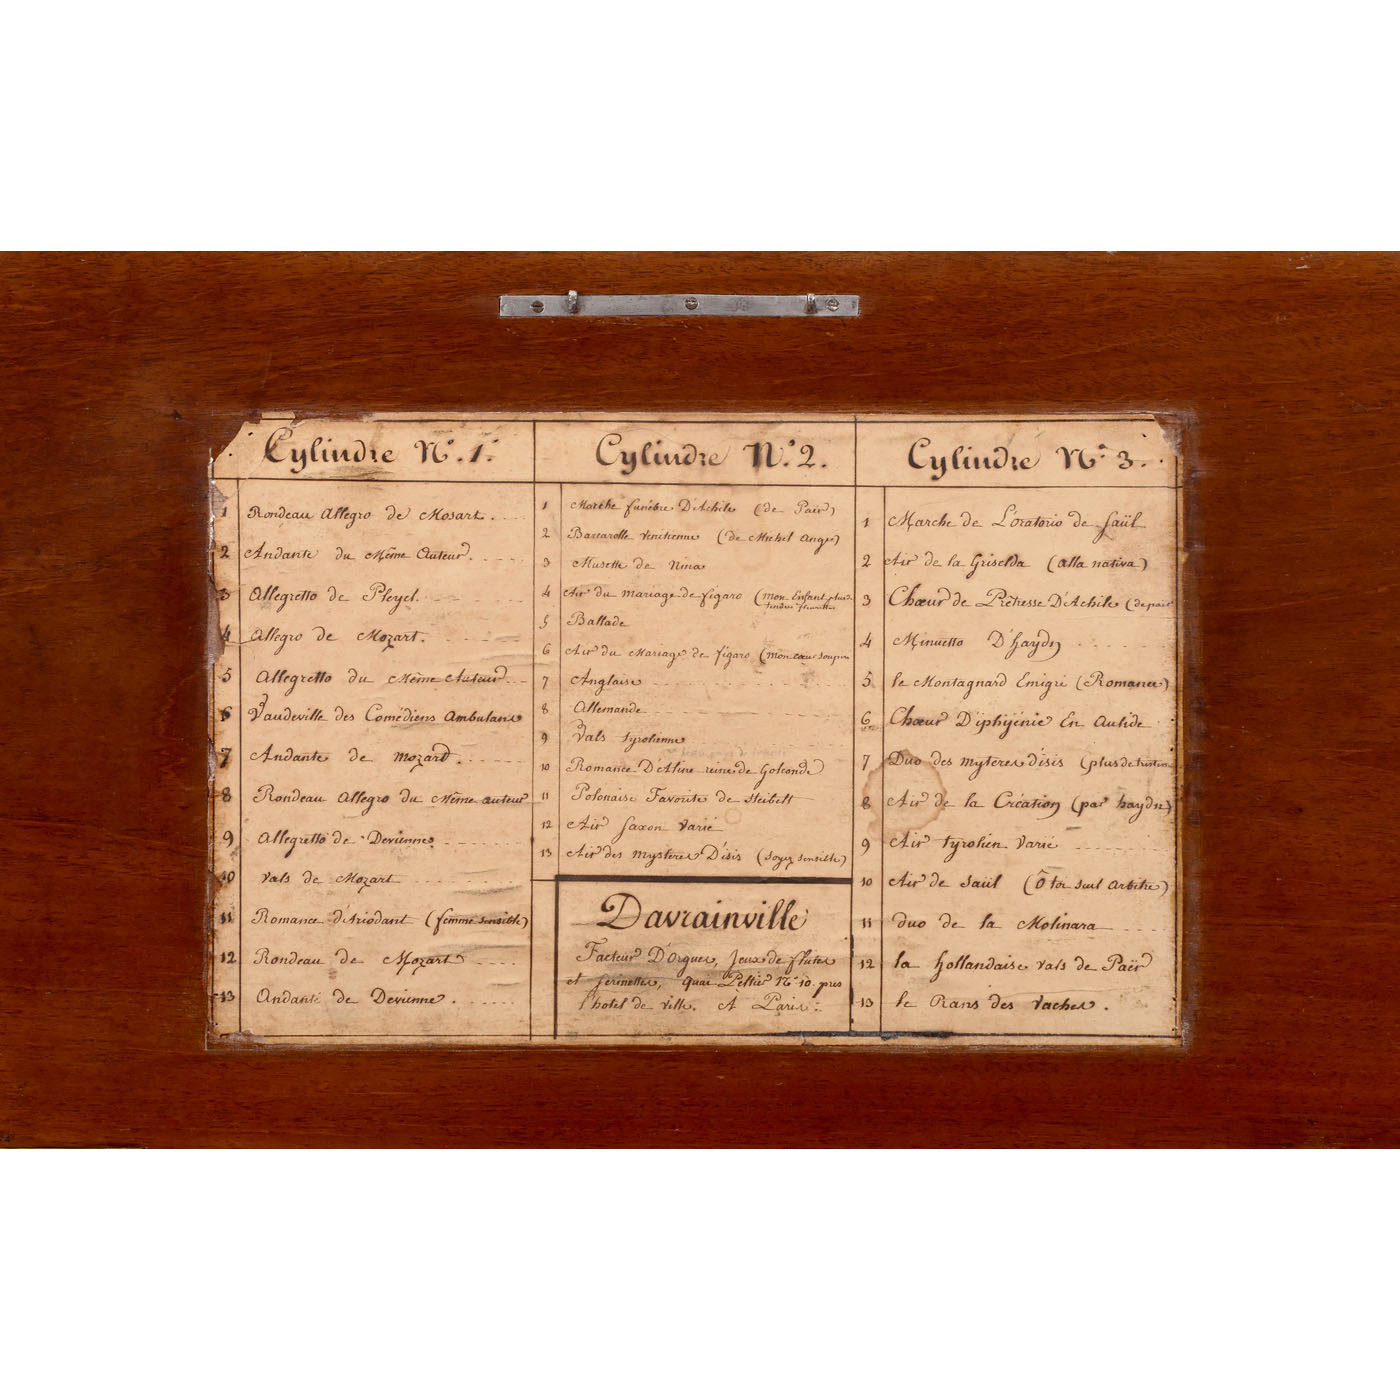 Cylindre N.º 1.
1 Rondeau Allegro de Mosart.
2 Andante du Même Auteur.
3 Allegretto de Pleyel.
4 Allegro de Mozart.
5 Allegretto du Même Auteur.
6 Vaudeville des Comédiens Ambulans
7 Andante de Mozart.
8 Rondeau Allegro du Même auteur
9 Allegretto de Devienne.
10 Vals de Mozart
11 Romance d'Ariodant (femme sensible)
12 Rondeau de Mozart
13 Andanté de Devienne.
Cylindre N.º 2.
1 Marche funèbre D'Achile (de Paër)
2 Barcarolle Venitienne (de Michel Ange)
3 Musette de Nina
4 Air du mariage de figaro (mon Enfant plus de
tendres fleurettes
5 Ballade
6 Air du Mariage de figaro (mon cœur soupire
7 Anglaise
8 Allemande
9 Vals tyrolienne
10 Romance D'Aline reine de Golconde
11 Polonaise Favorite de Steibelt
12 Air Saxon Varié
13 Air des mysteres D'isis (Soyez sensible)
Davrainville
Facteur D'Orgues, Jeux de flutes
et Serinettes, quai Peltier N.º 10. pres
l'hotel de Ville. A Paris.
Cylindre N.º 3.
1 Marche de L'oratorio de Saül
2 Air de la Griselda (alla nativa)
3 Chœur de Prêtresse D'Achile (de paër
4 Minuetto D'haydn
5 le Montagnard Emigré (Romance)
6 Chœur D'iphijénie En Aulide
7 Duo des mytères d'isis (plus de tristesse
8 Air de la Création (par haydn)
9 Air tyrolien Varié
10 Air de Saül (Ô toi seul arbitre)
11 duo de la Molinara
12 la hollandaise vals de Paër
13 le Rans des Vaches.